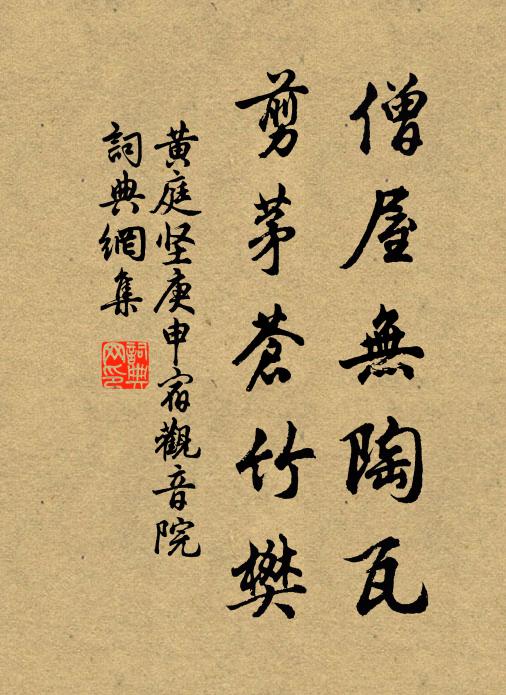 僧屋無陶瓦
剪茅蒼竹樊
黄庭坚庚申宿觀音院
詞典網集
詞典網印